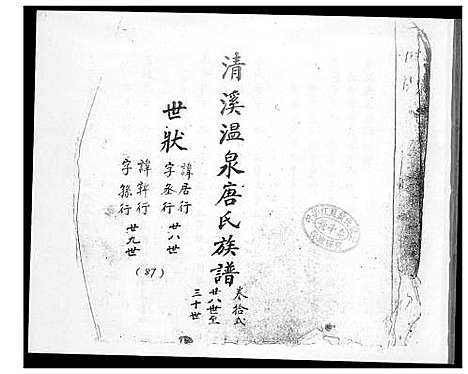 清溪温泉唐氏族譜
卷拾弍
廿八世至
三十世
世狀
諱居行
字丞行 廿八世
諱幹行
字緜行 廿九世
(87)